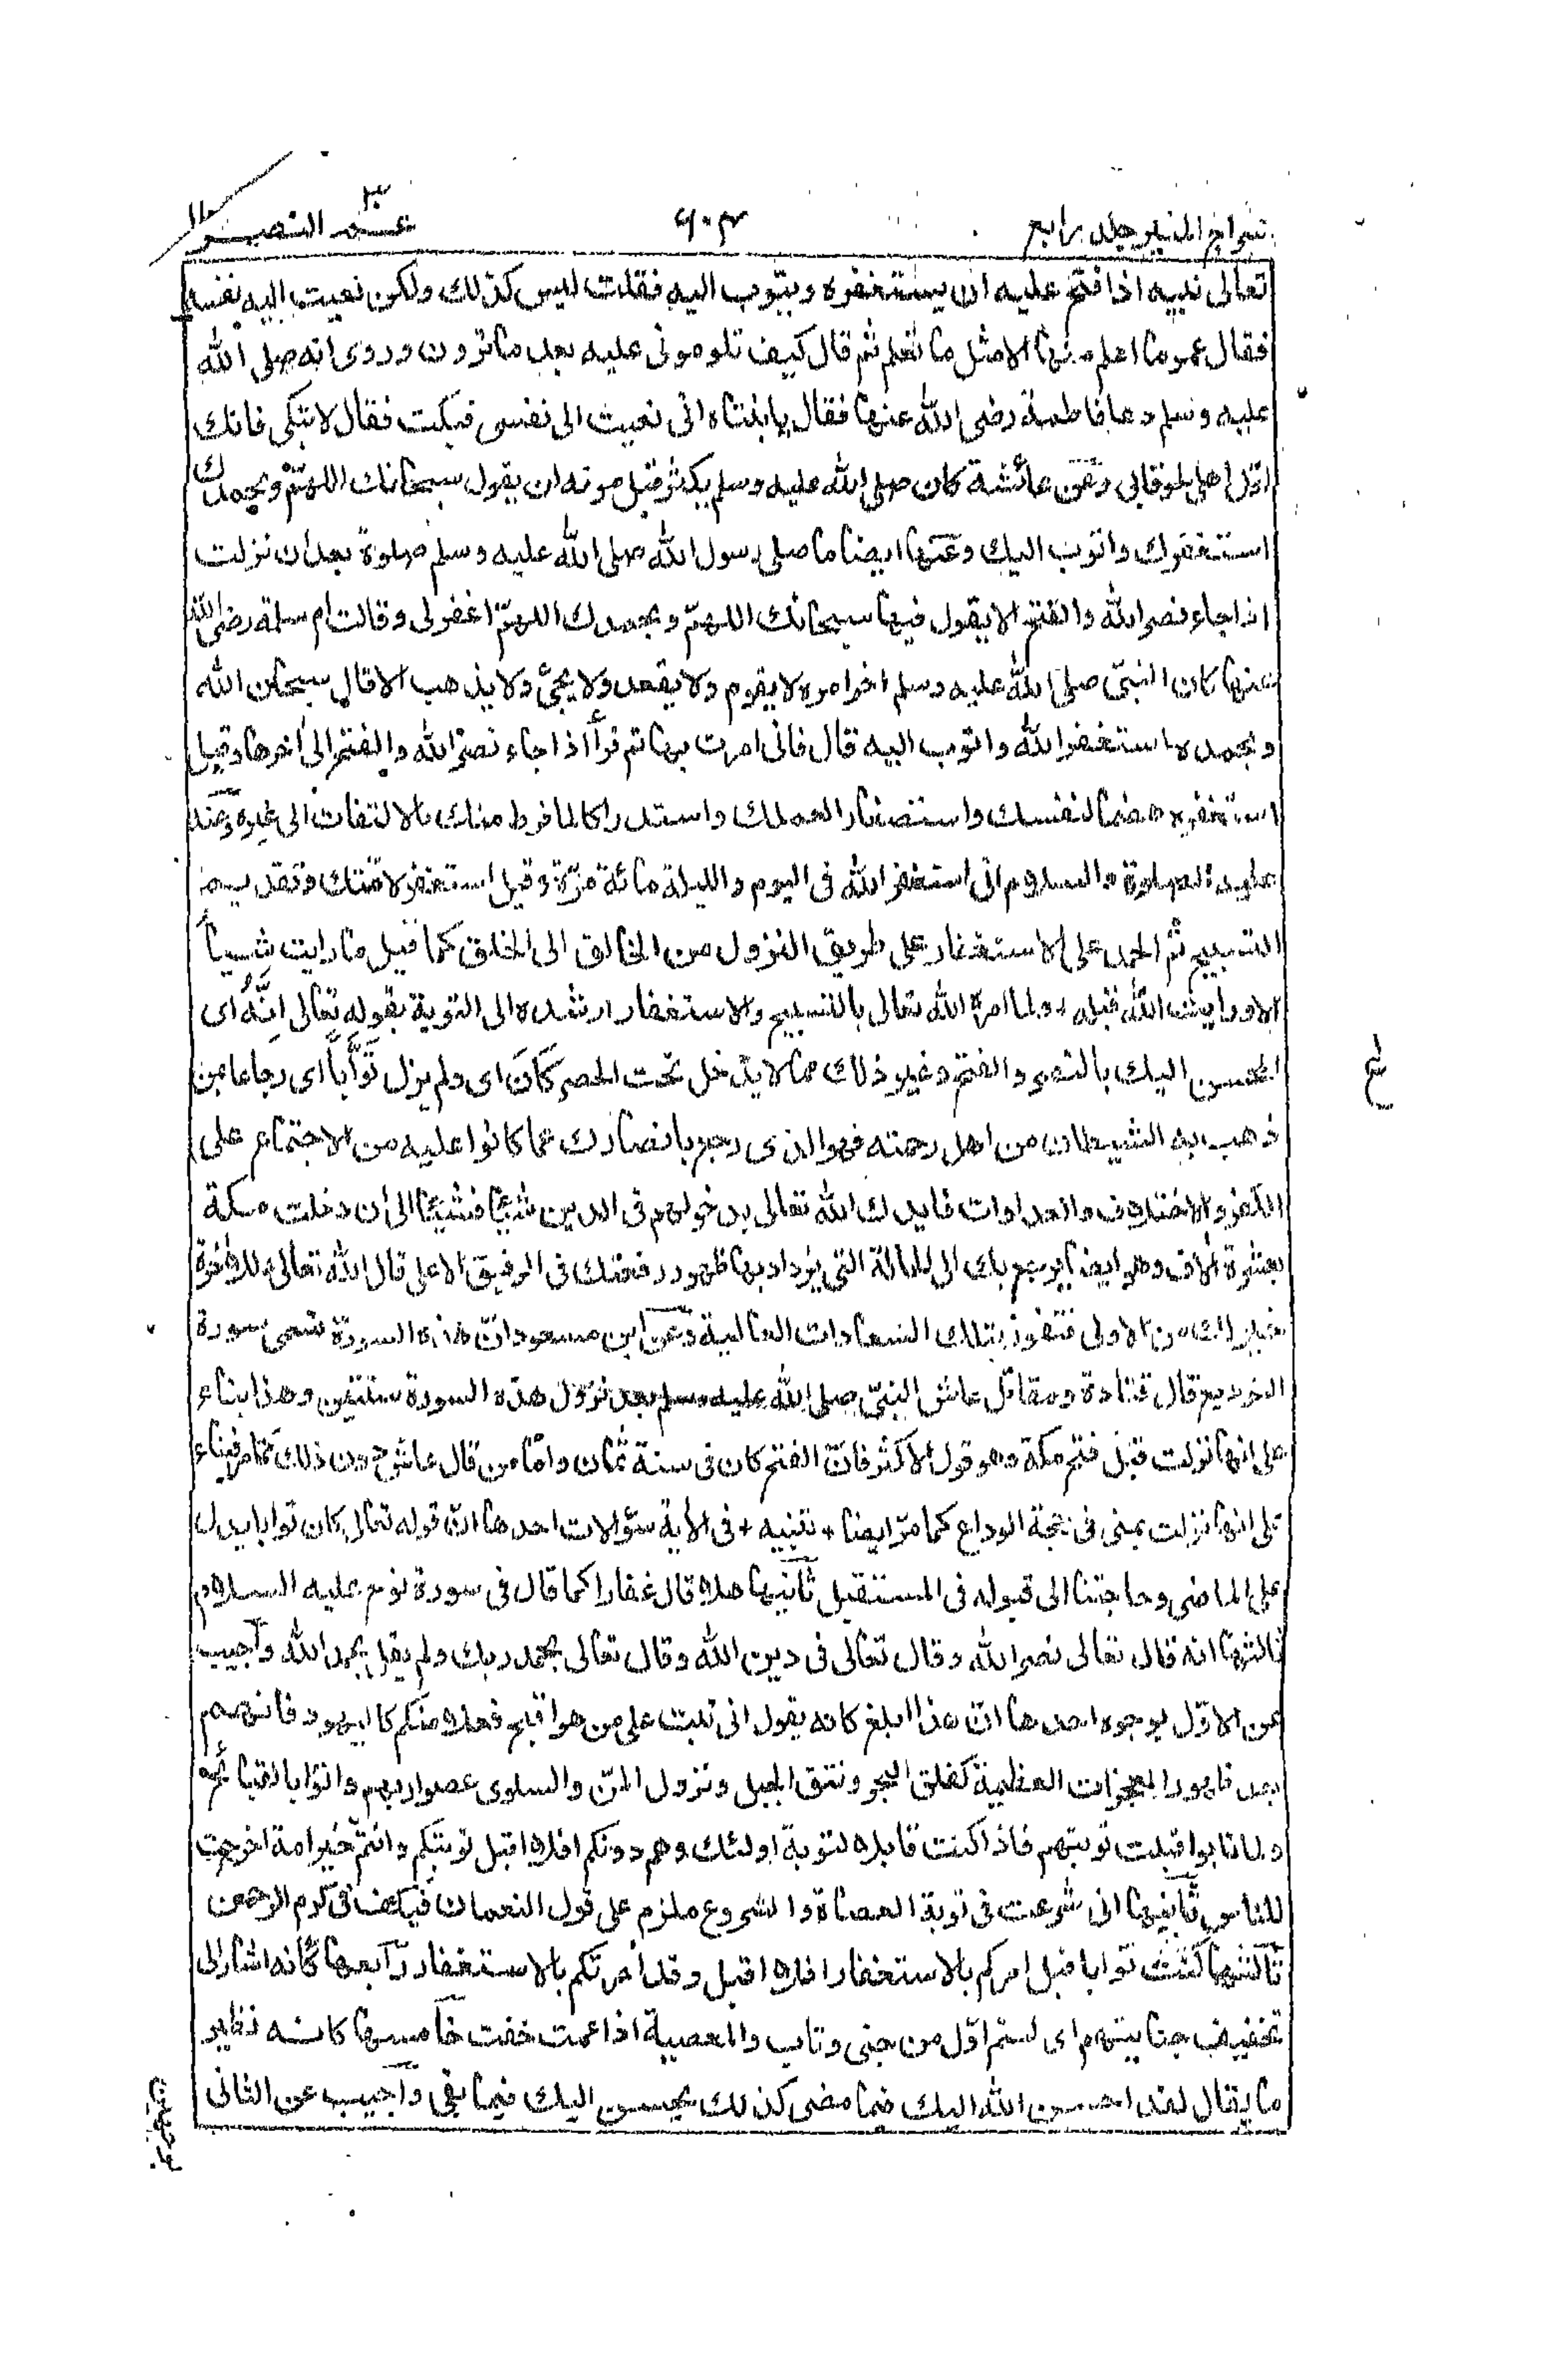 سراج المنير جلد رابع
٦٠٣
عم النصر
تعالى نبيه اذا فتح عليه ان يستغفره ويتوب اليه فقلت ليس كذلك ولكن نعيت اليه نفسه
فقال عمر ما اعلم منها الا مثل ما تعلم ثم قال كيف تلوموني عليه بعد ما ترون وروى انه صلى الله
عليه وسلم دعا فاطمة رضى الله عنها فقال يا بنتاه انى نعيت الى نفسى فبكت فقال لا تبكى فانك
اوّل اهلى لحوقا بى وعن عائشة كان صلى الله عليه وسلم يكثر قبل موته ان يقول سبحانك اللهمّ وبحمدك
استغفرك واتوب اليك وعنها ايضا ما صلى رسول الله صلى الله عليه وسلم صلوة بعد ان نزلت
اذا جاء نصر الله والفتح الا يقول فيها سبحانك اللهمّ وبحمدك اللهمّ اغفر لى وقالت ام سلمة رضى الله
عنها كان النبىّ صلى الله عليه وسلم اخر امره لا يقوم ولا يقعد ولا يجئ ولا يذهب الا قال سبحان الله
وبحمده استغفر الله واتوب اليه قال فانى امرت بها ثم قرأ اذا جاء نصر الله والفتح الى اخرها وقيل
استغفره هضما لنفسك واستصغارا لعملك واستدراكا لما فرط منك بالالتفات الى غيره وعنه
عليه الصلوة والسلام انى استغفر الله فى اليوم والليلة مائة مرّة وقيل استغفر لامّتك وتقديم
التسبيح ثم الحمد على الاستغفار على طريق النزول من الخالق الى الخلق كما قيل ما رايت شيأ
الا ورايت الله قبله + ولما امره الله تعالى بالتسبيح والاستغفار ارشده الى التوبة بقوله تعالى اِنَّهُ اى
المحسن اليك بالنصر والفتح وغير ذلك مما لا يدخل تحت الحصر كَانَ اى ولم يزل تَوَّابًا اى رجاعا من
ذهب به الشيطان من اهل رحمته فهو الذى رجع بانصارك عما كانوا عليه من الاجتماع على
الكفر والاختلاف والعداوات فايدك الله تعالى بدخولهم فى الدين شيئا فشيئا الى ان دخلت مكة
بعشرة الاف وهو ايضا يرجع بك الى الحالة التى يزداد بها ظهور رفعتك فى الرفيق الاعلى قال الله تعالى وللاخرة
خير لك من الاولى فتفوز بتلك السعادات العالية وعن ابن مسعود ان هذه السورة تسمى سورة
التوديع قال قتادة ومقاتل عاش النبىّ صلى الله عليه وسلم بعد نزول هذه السورة سنتين وهذا بناء
على انها نزلت قبل فتح مكة وهو قول الاكثر فانّ الفتح كان فى سنة ثمان وامّا من قال عاش دون ذلك كما مر فبناء
على انها نزلت بمنى فى حجة الوداع كما مرّ ايضا + تنبيه + فى الاية سؤالات احدها انّ قوله تعالى كان توابا يدل
على الماضى وحاجتنا الى قبوله فى المستقبل ثانيها هلا قال غفارا كما قال فى سورة نوح عليه السلام
ثالثها انه قال تعالى نصر الله وقال تعالى فى دين الله وقال تعالى بحمد ربك ولم يقل بحمد الله واجيب
عن الاوّل بوجوه احدها انّ هذا ابلغ كانه يقول انى تبت على من هو اقبح فعلا منكم كاليهود فانهم
بعد ظهور المعجزات العظيمة كفلق البحر ونتق الجبل ونزول المنّ والسلوى عصوا ربهم واتوا بالقبائح
ولما تابوا قبلت توبتهم فاذا كنت قابلا لتوبة اولئك وهم دونكم افلا اقبل توبتكم وانتم خير امة اخرجت
للناس ثانيها انى شرعت فى توبة العصاة والشروع ملزم على قول النعمان فكيف فى كرم الرحمن
ثالثها كنت توابا قبل امركم بالاستغفار افلا اقبل وقد امرتكم بالاستغفار رابعها كانه اشار الى
تخفيف جنايتهم اى لستم اوّل من جنى وتاب والمعصية اذا عمت خفت خامسها كانه نظير
ما يقال لقد احسن الله اليك فيما مضى كذلك يحسن اليك فيما بقى واجيب عن الثانى
بوجهين